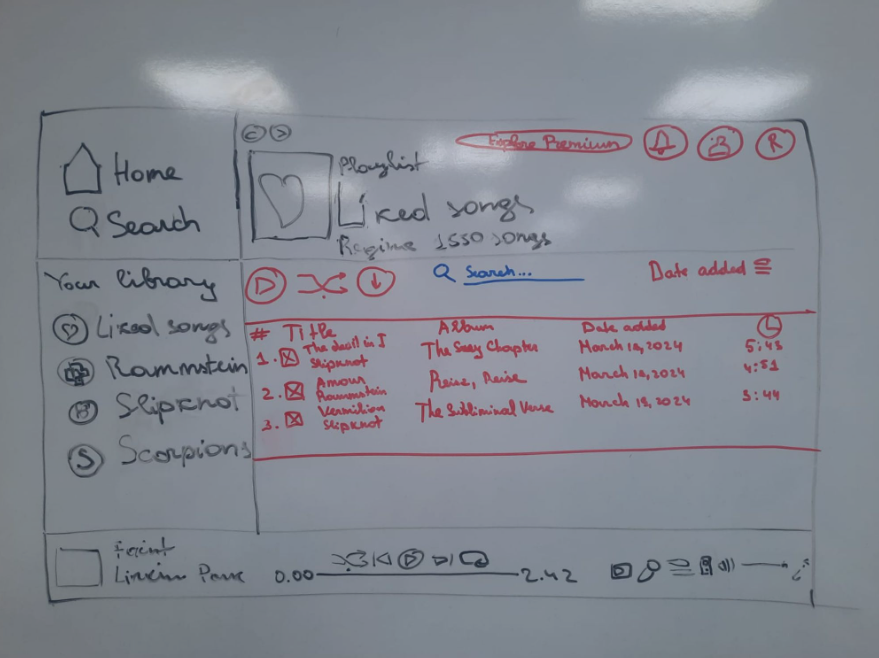 Home
Search
Your library
Liked songs
Rammstein
Slipknot
S Scorpions
Explore Premium
R
Playlist
Liked songs
Regime 1550 songs
Search...
Date added
# Title Album Date added
1. The devil in I The Gray Chapter March 18, 2024 5:43
Slipknot
2. Amour Reise, Reise March 18, 2024 4:51
Rammstein
3. Vermilion The Subliminal Verse March 18, 2024 3:44
Slipknot
Faint
Linkin Park
0.00 2.42